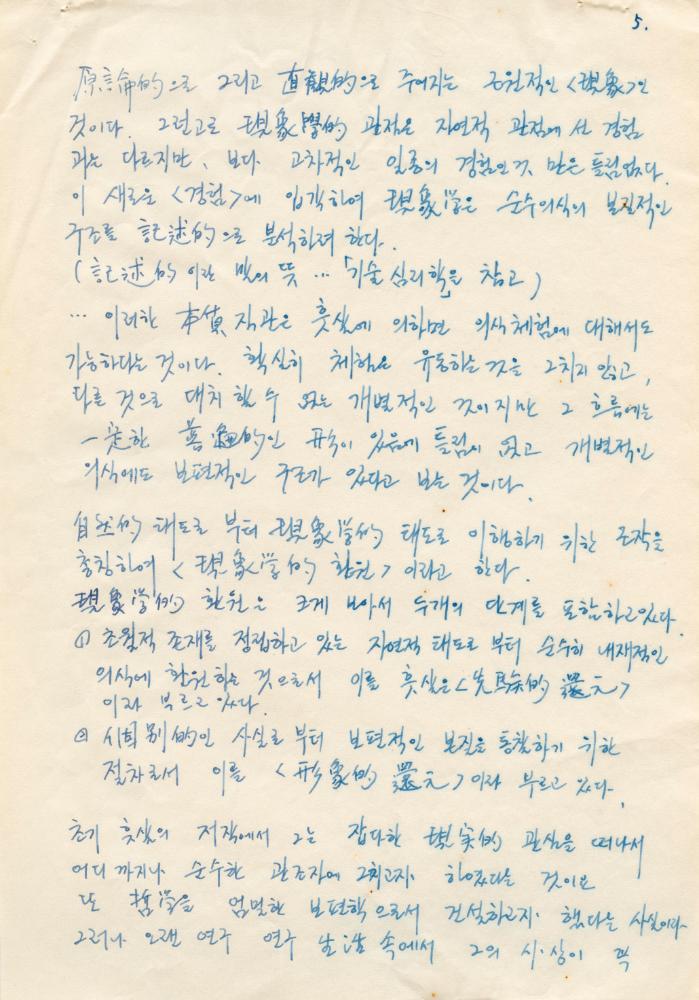 5.
原論的으로 그리고 直観的으로 주어지는 근원적인 <現象>인
것이다. 그런고로 現象學的 관점은 자연적 관점에 선 경험
과는 다르지만, 보다 고차적인 일종의 경험인 것 만은 틀림없다.
이 새로운 <경험>에 입각하여 現象学은 순수의식의 본질적인
구조를 記述的으로 분석하려 한다.
(記述的이란 말의 뜻 … 「기술심리학」을 참고)
… 이러한 本質 직관은 훗설에 의하면 의식체험에 대해서도
가능하다는 것이다. 확실히 체험은 유동하는 것을 그치지 않고,
다를 것으로 대치할 수 없는 개별적인 것이지만 그 흐름에는
一定한 普遍的인  형식이 있음에 틀림이 없고 개별적인
의식에도 보편적인 구조가 있다고 보는 것이다.
自然的 태도로 부터 現象学的 태도로 이행하기 위한 조작을
총칭하여 <現象学的 환원> 이라고 한다.
現象学的 환원은 크게 보아서 두개의 단계를 포함하고 있다.
① 초월적 존재를 정립하고 있는 자연적 태도로 부터 순수히 내재적인
의식에 환원하는 것으로서 이를 훗설은 <先驗的 還元>
이라 부르고 있다.
② 個別的인 사실로 부터 보편적인 본질을 통찰하기 위한
절차로서 이를 <形象的 還元> 이라 부르고 있다.
초기 훗설의 저작에서 그는 잡다한 現実的 관심을 떠나서
어디 까지나 순수한 관조자에 그치고자 하였다는 것이요
또 哲学을 엄밀한 보편학으로서 건설하고자 했다는 사실이라
그러나 오랜 연구 연구 生活 속에서 그의 사상이